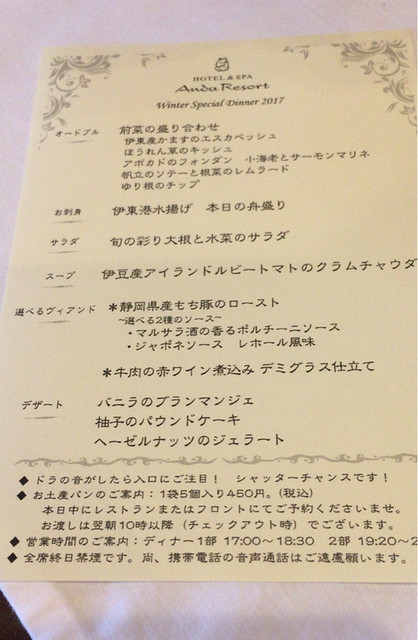 HOTEL & SPA
Anda Resort
Winter Special Dinner 2017
オードブル 前菜の盛り合わせ
伊東産かますのエスカベッシュ
ほうれん草のキッシュ
アボカドのフォンダン 小海老とサーモンマリネ
帆立のソテーと根菜のレムラード
ゆり根のチップ
お刺身 伊東港水揚げ 本日の舟盛り
サラダ 旬の彩り大根と水菜のサラダ
スープ 伊豆産アイランドルビートマトのクラムチャウダ
選べるヴィアンド *静岡県産もち豚のロースト
~選べる2種のソース~
・マルサラ酒の香るポルチーニソース
・ジャポネソース レホール風味
*牛肉の赤ワイン煮込み デミグラス仕立て
デザート バニラのブランマンジェ
柚子のパウンドケーキ
ヘーゼルナッツのジェラート
◆ ドラの音がしたら入口にご注目! シャッターチャンスです!
◆ お土産パンのご案内:1袋5個入り450円。(税込)
本日中にレストランまたはフロントにてご予約くださいませ。
お渡しは翌朝10時以降(チェックアウト時)でございます。
◆ 営業時間のご案内:ディナー1部 17:00~18:30 2部 19:20~2
◆ 全席終日禁煙です。尚、携帯電話の音声通話はご遠慮願います。